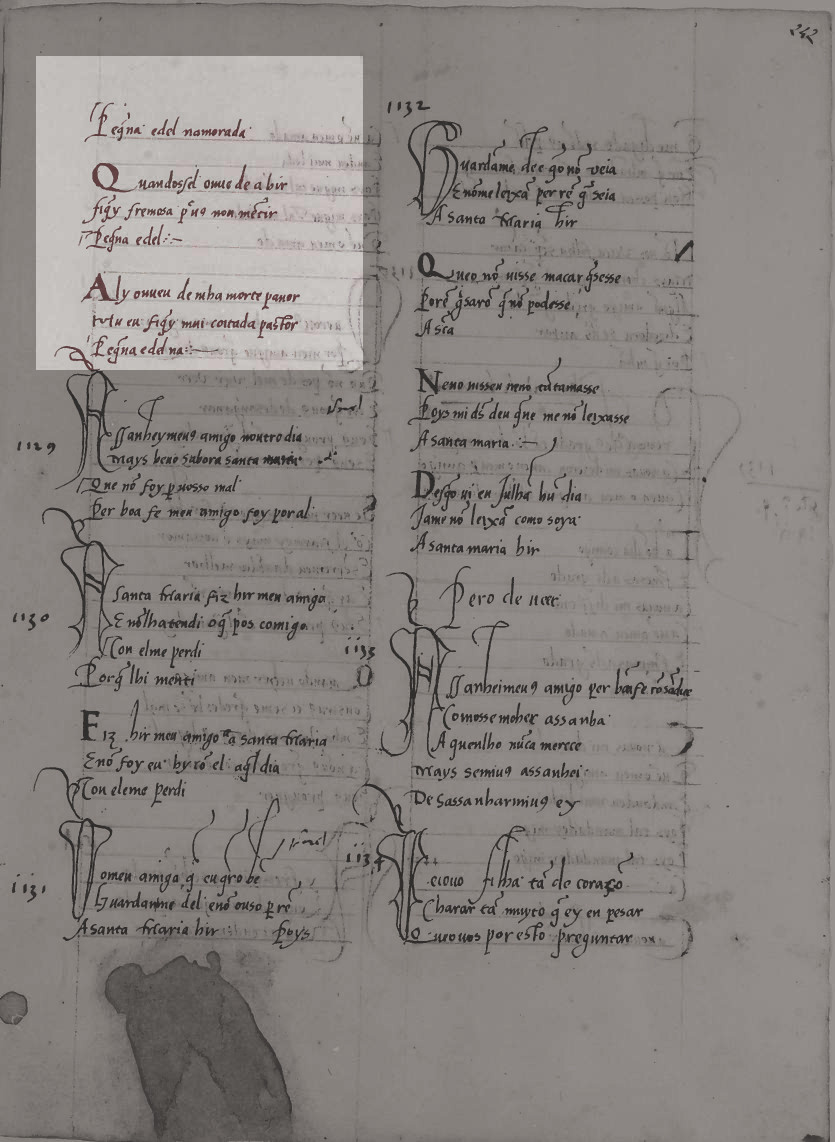 Peg̃na edel namorada
Quandossel ouue de a hir
fiq̄y fremosa p̃ uꝯ non mẽtir
Peg̃na edel :~
Aly ouueu de mha morte pauor
fiq̄y mui coitada pastor
Peg̃na edel na :~
1129
Assanheymeuꝯ amigo noutro dia
Mays beno sabora santa maria
Que nõ foy p̱ uosso mal
Per boa fe meu amigo foy por al
1130
A Santa Maria fiz hir meu amigo
E nõ lhatendi o q̄ pos comigo
Con elme perdi
Porq̄ lhi menti
Fiz hir meu amigo a santa Maria
E nõ foy eu hy cõ el aq̄l dia
Con eleme perdi
1131
Pomeu amigo q̄ eu q̄ro bẽ
Guardanme del e nõ ouso p̱ rẽ
A santa Maria hir :~ Poys
1132
Guardãme de e q̄o nõ ueia
E nõme leixã per rẽ q̄ seia
A Santa Maria hir
Queo nõ uisse macar q̄sesse
Porẽ g̃sarõ q̄ nõ podesse
A sc̃a
Neno uisseu neno tãtamasse
Poys mi ds̃ deu q̄ne me nõ leixasse
A santa maria :~
Desq̄o ui en Julhã hũ dia
Jame nõ leixã como soya
A santa maria hir
Pero de ueer
1133
Assanheimeuꝯ amigo per bõafe cõ sãdice
Comosse moher assanha
A quenlho nũca merece
Mays semiuꝯ assanhei
Desassanharmiuꝯ ey
1134
Veiouo filha tã de coraçõ
Charar tã muyto q̄ ey en pesar
Queouos por esto preguntar
242